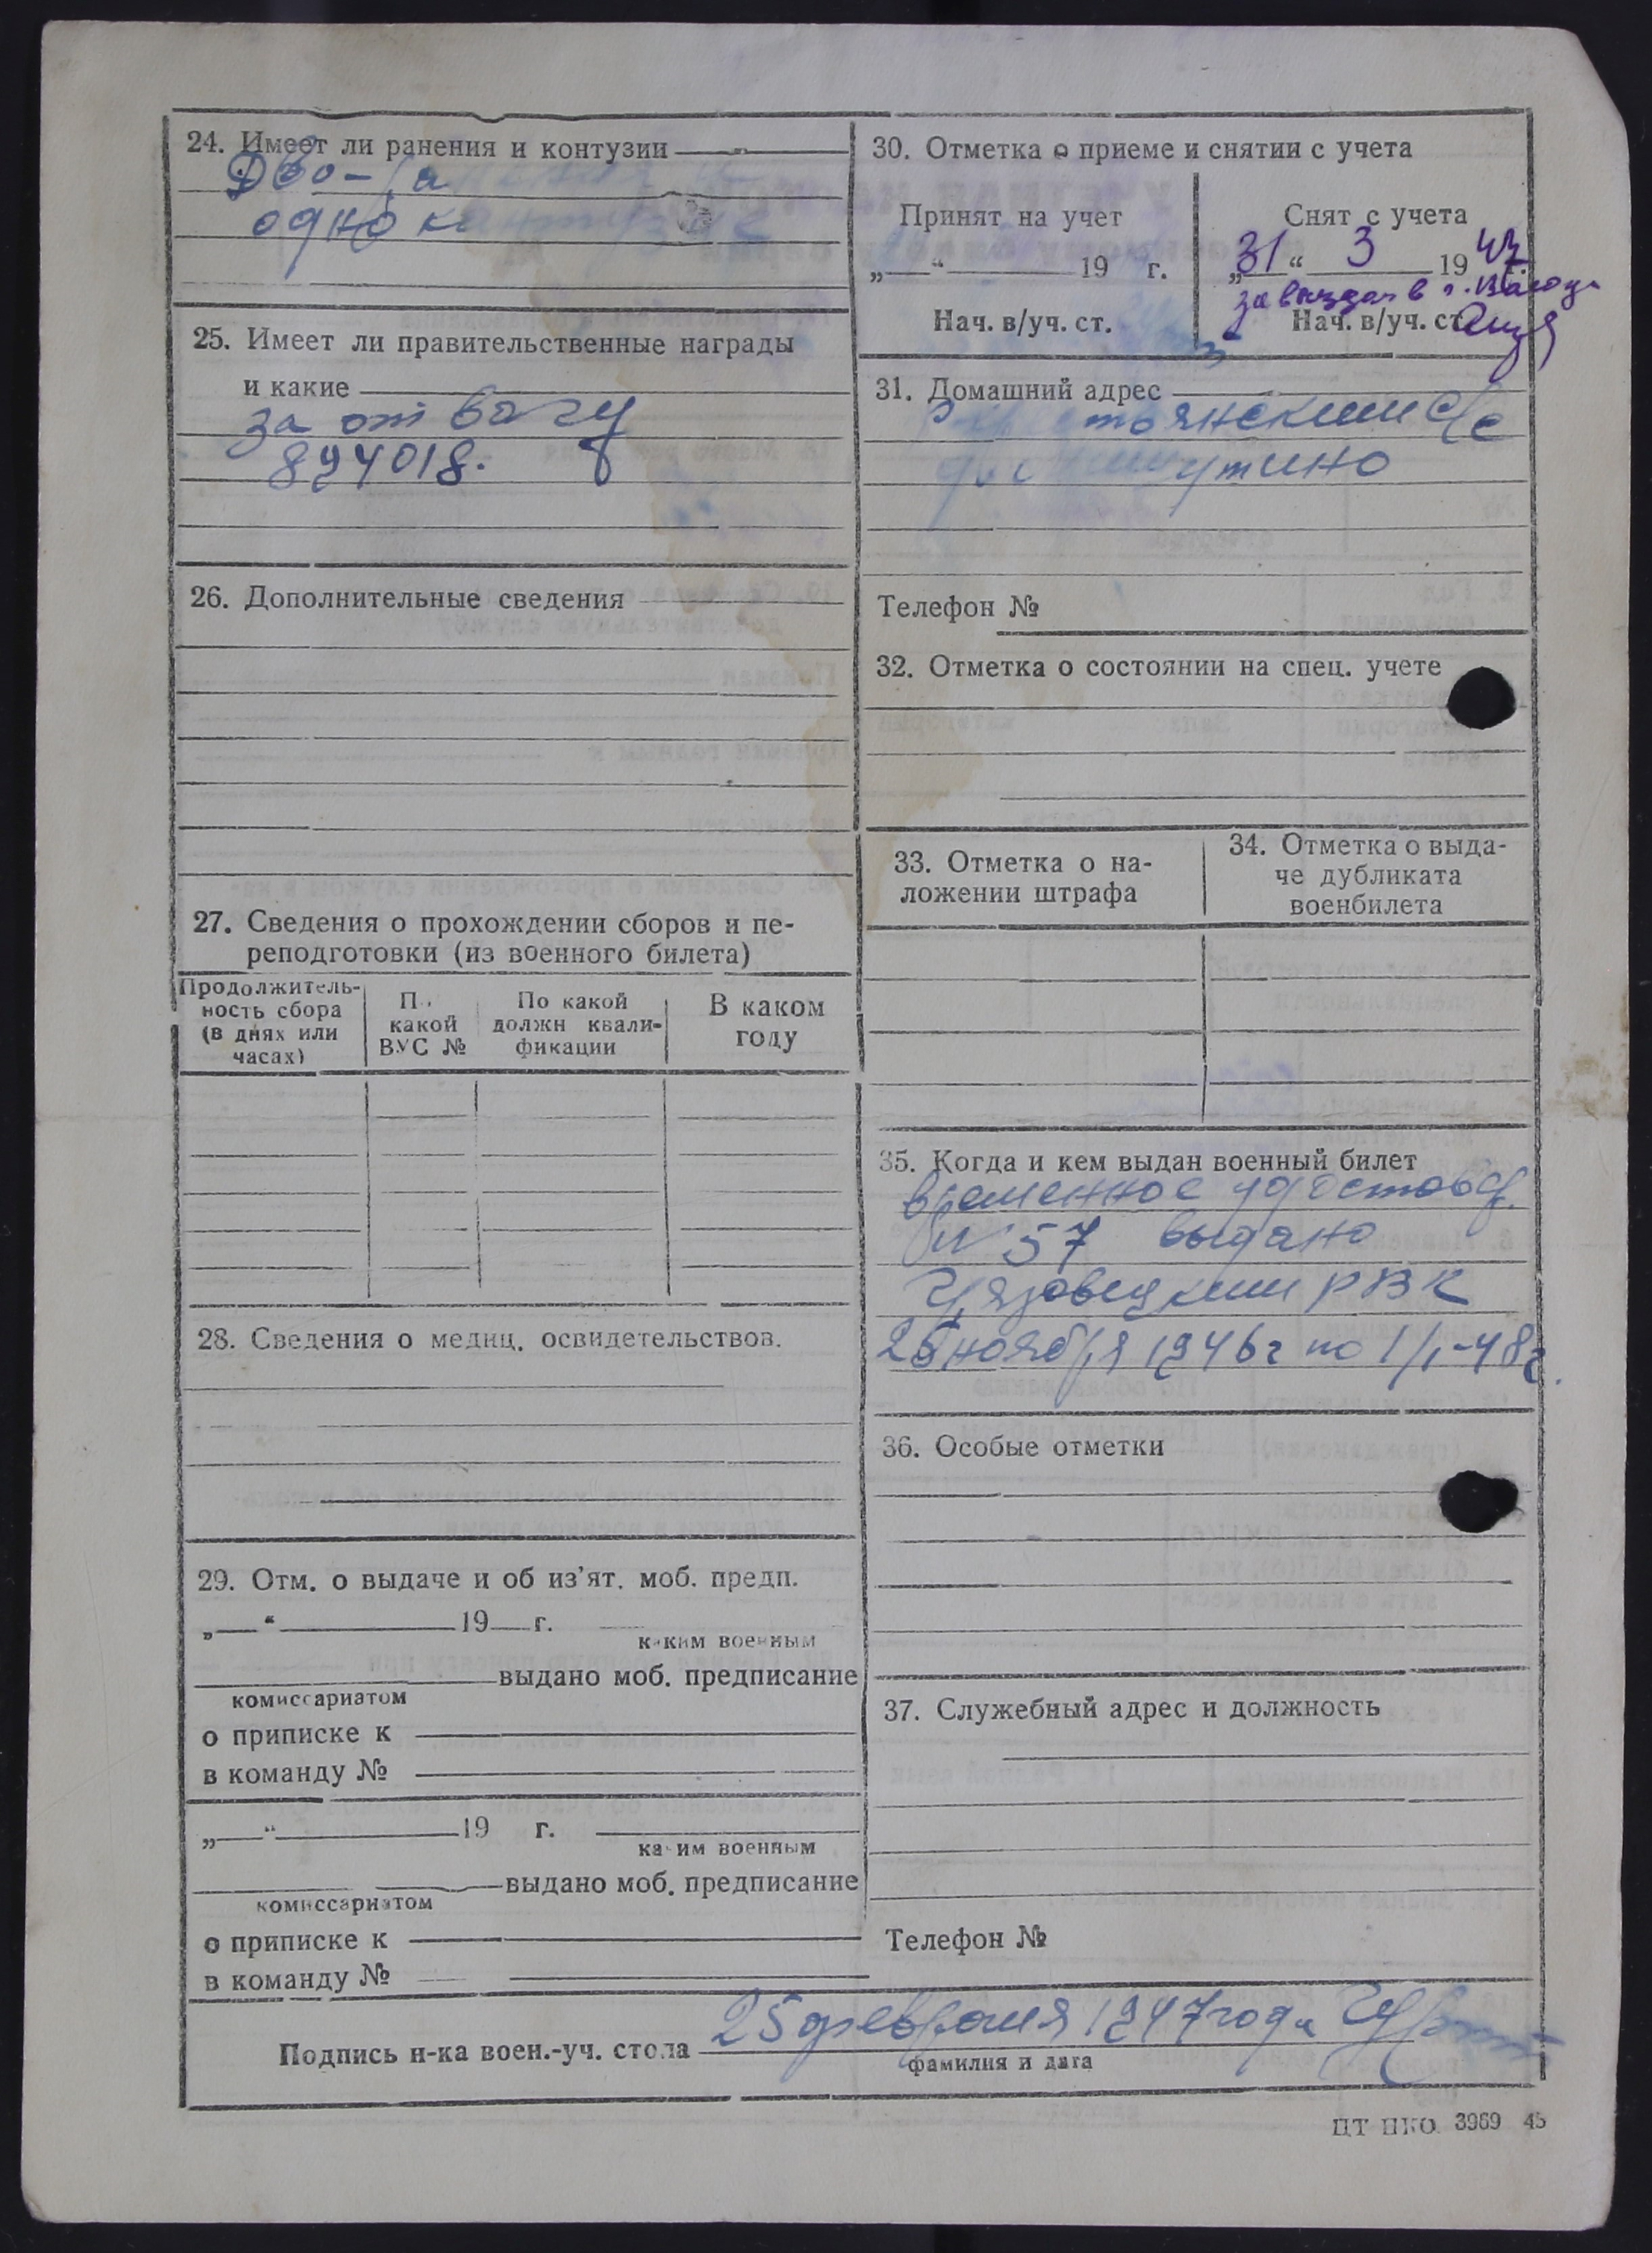 24. Имеет ли ранения и контузии
Два ра
одно
25. Имеет ли правительственные награды
и какие
за отвагу
894018.
26. Дополнительные сведения
27. Сведения о прохождении сборов и пе-
реподготовки (из военного билета)
Продолжитель-
ность сбора
(в днях или
часах)
П
какой
ВУС №
По какой
должн квали-
фикации
В каком
году
28. Сведения о медиц. освидетельствов.
29. Отм. о выдаче и об из'ят. моб. предп.
„ “ 19 г.
каким военным
выдано моб. предписание
комиссариатом
о приписке к
в команду №
„ “ 19 г.
каким военным
выдано моб. предписание
комиссариатом
о приписке к
в команду №
30. Отметка о приеме и снятии с учета
Принят на учет
„ “ 19 г.
Нач. в/уч. ст.
Снят с учета
„31“ 3 1947
Нач. в/уч. ст.
31. Домашний адрес
с/с
Телефон №
32. Отметка о состоянии на спец. учете
33. Отметка о на-
ложении штрафа
34. Отметка о выда-
че дубликата
военбилета
35. Когда и кем выдан военный билет
временное удостов.
№ 57 выдано
Грязовецким РВК
26 ноября 1946г по 1/1-48г.
36. Особые отметки
37. Служебный адрес и должность
Телефон №
Подпись н-ка воен.-уч. стола 25 февраля 1947 года
фамилия и дата
ЦТ НКО 3969 45